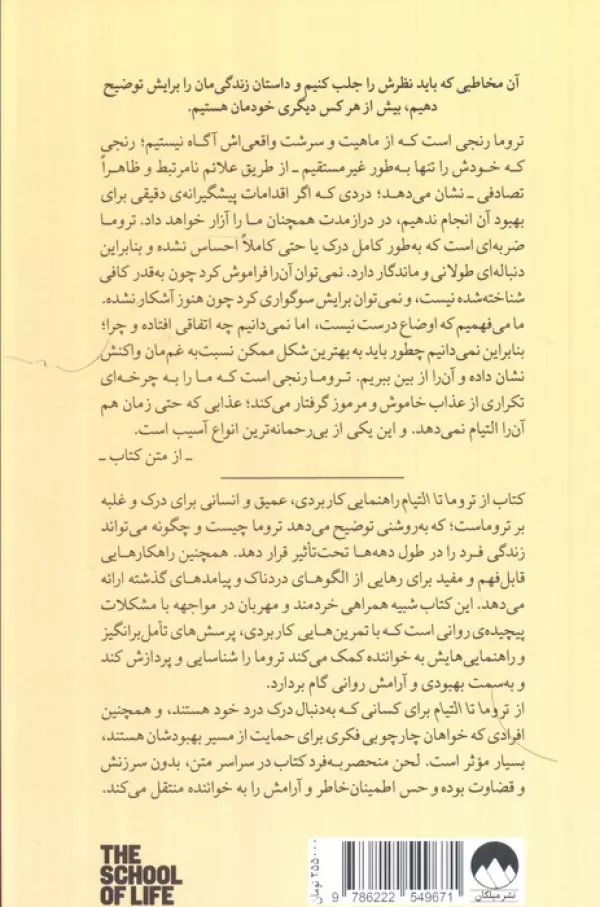 آن مخاطبی که باید نظرش را جلب کنیم و داستان زندگی‌مان را برایش توضیح
دهیم، بیش از هر کس دیگری خودمان هستیم.
تروما رنجی است که از ماهیت و سرشت واقعی‌اش آگاه نیستیم؛ رنجی
که خودش را تنها به‌طور غیرمستقیم ـ از طریق علائم نامرتبط و ظاهراً
تصادفی ـ نشان می‌دهد؛ دردی که اگر اقدامات پیشگیرانه‌ی دقیقی برای
بهبود آن انجام ندهیم، در درازمدت همچنان ما را آزار خواهد داد. تروما
ضربه‌ای است که به‌طور کامل درک یا حتی کاملاً احساس نشده و بنابراین
دنباله‌ای طولانی و ماندگار دارد. نمی‌توان آن‌را فراموش کرد چون به‌قدر کافی
شناخته‌شده نیست، و نمی‌توان برایش سوگواری کرد چون هنوز آشکار نشده.
ما می‌فهمیم که اوضاع درست نیست، اما نمی‌دانیم چه اتفاقی افتاده و چرا؛
بنابراین نمی‌دانیم چطور باید به بهترین شکل ممکن نسبت‌به غم‌مان واکنش
نشان داده و آن‌را از بین ببریم. تروما رنجی است که ما را به چرخه‌ای
تکراری از عذاب خاموش و مرموز گرفتار می‌کند؛ عذابی که حتی زمان هم
آن‌را التیام نمی‌دهد. و این یکی از بی‌رحمانه‌ترین انواع آسیب است.
ـ از متن کتاب ـ
کتاب از تروما تا التیام راهنمایی کاربردی، عمیق و انسانی برای درک و غلبه
بر تروماست؛ که به‌روشنی توضیح می‌دهد تروما چیست و چگونه می‌تواند
زندگی فرد را در طول دهه‌ها تحت‌تأثیر قرار دهد. همچنین راهکارهایی
قابل‌فهم و مفید برای رهایی از الگوهای دردناک و پیامدهای گذشته ارائه
می‌دهد. این کتاب شبیه همراهی خردمند و مهربان در مواجهه با مشکلات
پیچیده‌ی روانی است که با تمرین‌هایی کاربردی، پرسش‌های تأمل‌برانگیز
و راهنمایی‌هایش به خواننده کمک می‌کند تروما را شناسایی و پردازش کند
و به‌سمت بهبودی و آرامش روانی گام بردارد.
از تروما تا التیام برای کسانی که به‌دنبال درک درد خود هستند، و همچنین
افرادی که خواهان چارچوبی فکری برای حمایت از مسیر بهبودشان هستند،
بسیار مؤثر است. لحن منحصربه‌فرد کتاب در سراسر متن، بدون سرزنش
و قضاوت بوده و حس اطمینان‌خاطر و آرامش را به خواننده منتقل می‌کند.
THE
SCHOOL
OF LIFE
۲۵۵۰۰۰ تومان
9 786222 549671
نشر میلکان